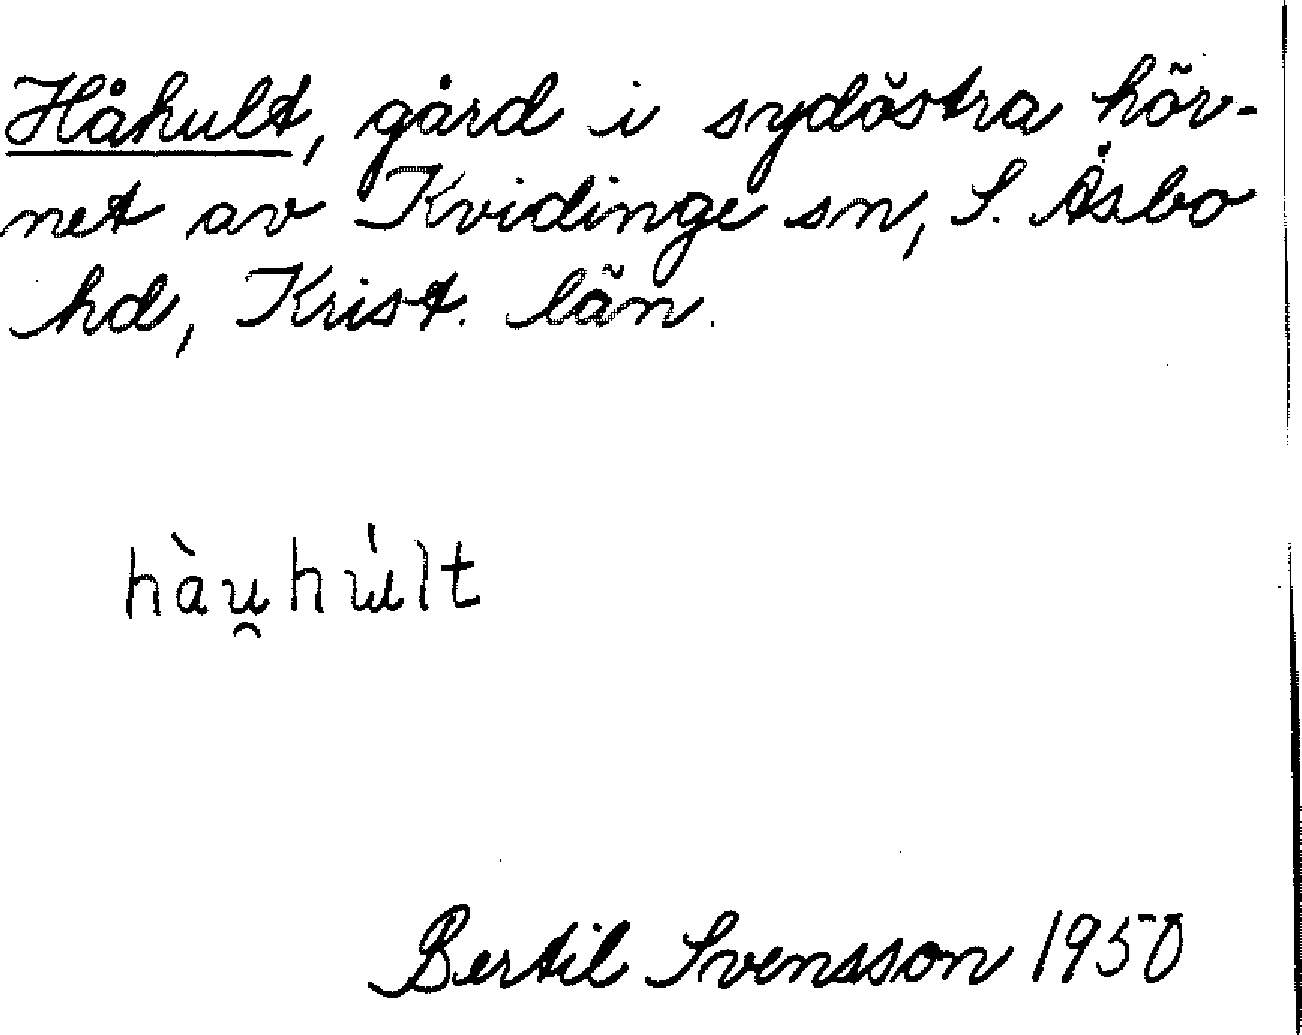 Håhult, gård i sydöstra hör-
net av Kvidinge sn, S. Åsbo
hd, Krist. län.
hàu̯hu̍lt
Bertil Svensson 1950